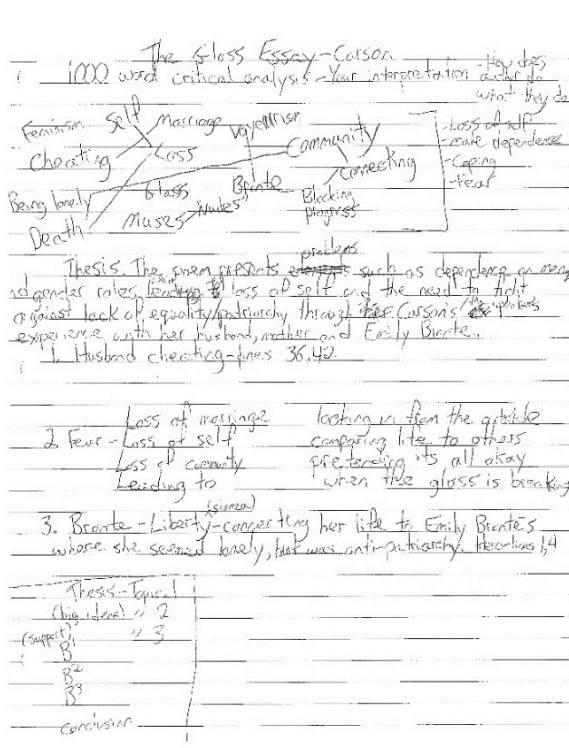 The Glass Essay - Carson
1000 word critical analysis - Your interpretation
- How does
author do
what they do
Feminism Self Marriage Voyeurism
Cheating Loss Community
Connecting
Being lonely Glass Bronte Blocking
progress
Death Muses "Nudes"
- Loss of self
- male dependence
- Coping
- Fear
problems
Thesis. The poem presents such as dependence on men
nd gender roles, leading to loss of self and the need to fight
against lack of equality/patriarchy through Carson's the speakers
experience with her husband, mother and Emily Bronte.
1. Husband cheating - lines 36, 42
Loss of marriage looking in from the outside
2. Fear - Loss of self comparing life to others
Loss of community pretending its all okay
Leading to when the glass is breaking
3. Bronte - Liberty - connecting her life to Emily Bronte's
where she seemed lonely, but was anti-patriarchy. lines 1,4
Thesis - Topic 1
(big ideas) " 2
(support) " 3
B1
B2
B3
Conclusion